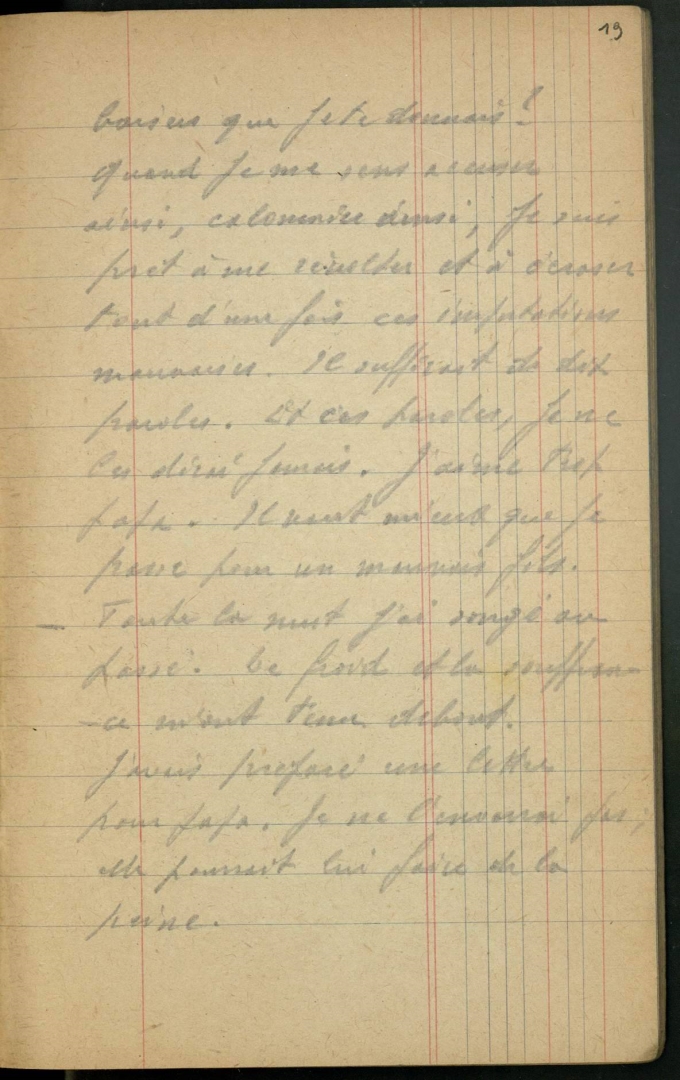 19
baisers que je te donnais !
Quand je me sens accuser
ainsi, calomnier ainsi, je suis
prêt à me révolter et à écraser
tout d'une fois ces imputations
mauvaises. Il suffirait de dix
paroles. Et ces paroles, je ne
les dirai jamais. J'aime trop
papa. Il vaut mieux que je
passe pour un mauvais fils.
— Toute la nuit j'ai songé au
passé. Le froid et la souffran-
-ce m'ont tenu debout.
J'avais préparé une lettre
pour papa. Je ne l'enverrai pas ;
elle pourrait lui faire de la
peine.